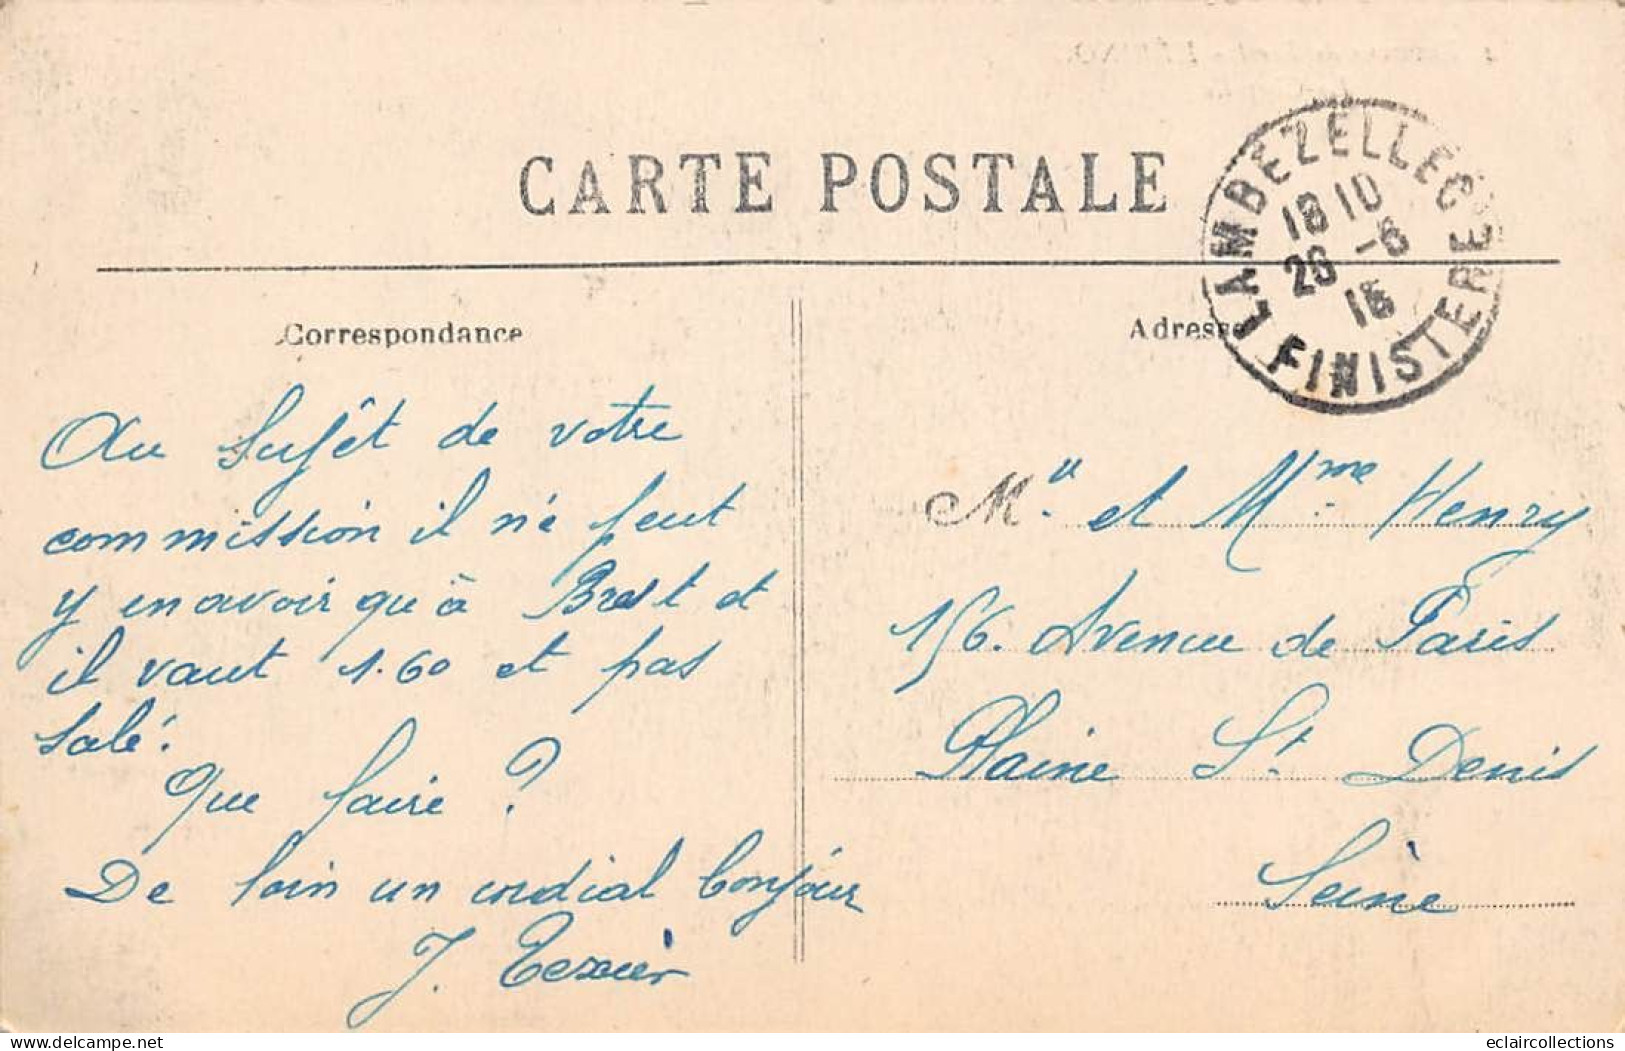 CARTE POSTALE
LAMBEZELLEC
18 10
26 -6
16
FINISTERE
Correspondance
Adresse
Au sujêt de votre
commission il n'é peut
y en avoir qu'à Brest et
il vaut 1.60 et pas
salé.
Que faire ?
De loin un cordial bonjour
J.
Mr. et Mme Henry
156. Avenue de Paris
Plaine St. Denis
Seine
delcampe.net
eclaircollections